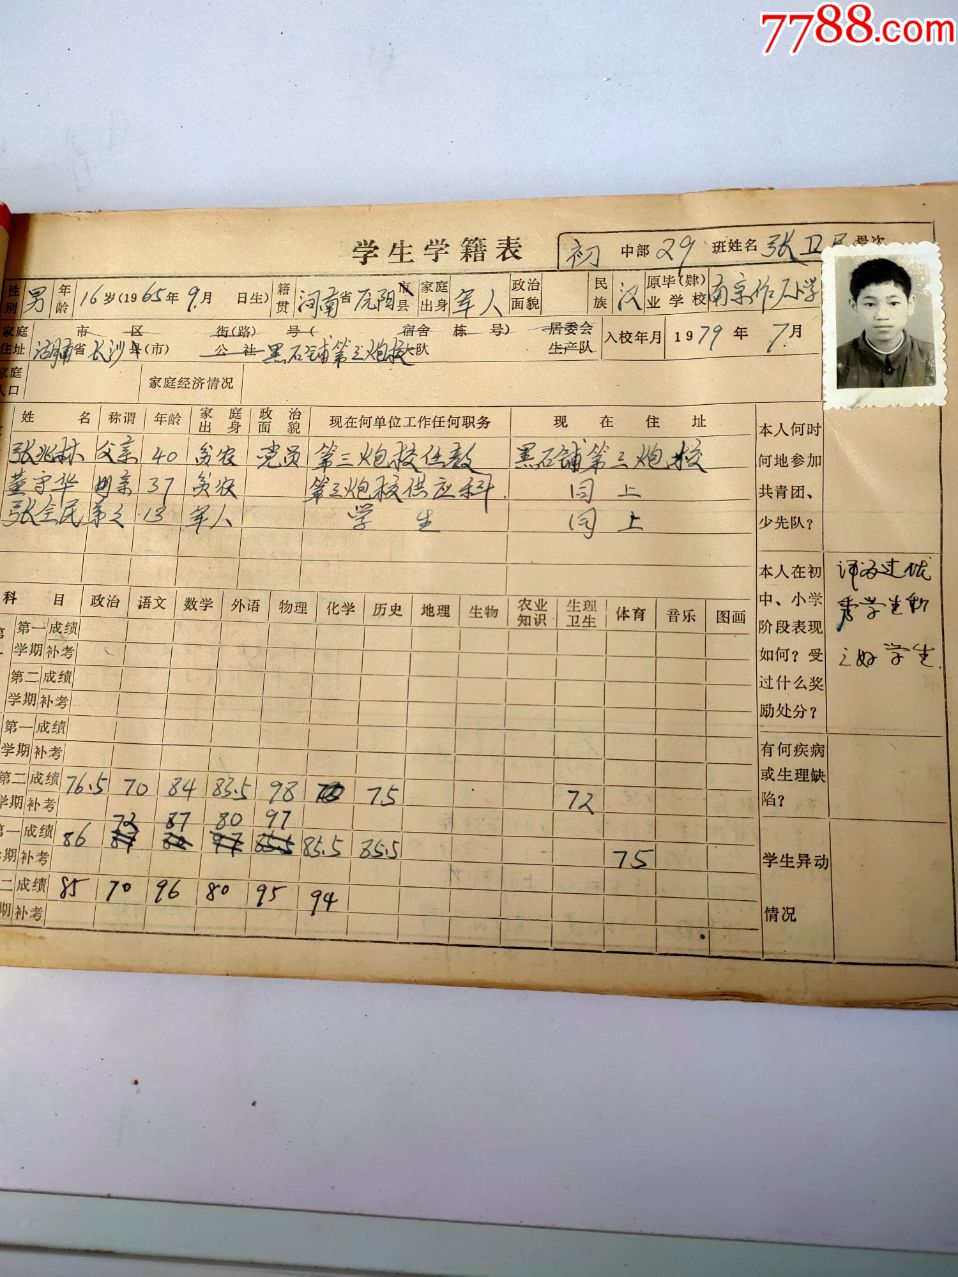 7788.com
学生学籍表
初 中部 29 班姓名 张卫
性别 男 年龄 16岁(1965年 9月 日生) 籍贯 河南省 原阳 市县 家庭出身 军人 政治面貌 民族 汉 原毕(肄)业学校 南京
家庭住址 市 区 街(路) 号( 宿舍 栋 号) 居委会 入校年月 1979年 7月
湖南省长沙县(市) 公社 黑石铺第三炮校大队 生产队
家庭人口 家庭经济情况
姓名 称谓 年龄 家庭出身 政治面貌 现在何单位工作任何职务 现在住址
张兆林 父亲 40 贫农 党员 第三炮校任教 黑石铺第三炮校
董守华 母亲 37 贫农 第三炮校供应科 同上
张全民 弟 13 军人 学生 同上
本人何时何地参加共青团、少先队?
本人在初中、小学阶段表现如何?受过什么奖励处分?
评为过优秀学生和三好学生
有何疾病或生理缺陷?
学生异动情况
科目 政治 语文 数学 外语 物理 化学 历史 地理 生物 农业知识 生理卫生 体育 音乐 图画
第一学期 成绩
补考
第二学期 成绩
补考
第一学期 成绩
补考
第二学期 成绩 76.5 70 84 83.5 98 75 72
补考
第一学期 成绩 86 72 87 80 97 85.5 85.5 75
补考
第二学期 成绩 85 70 96 80 95 94
补考